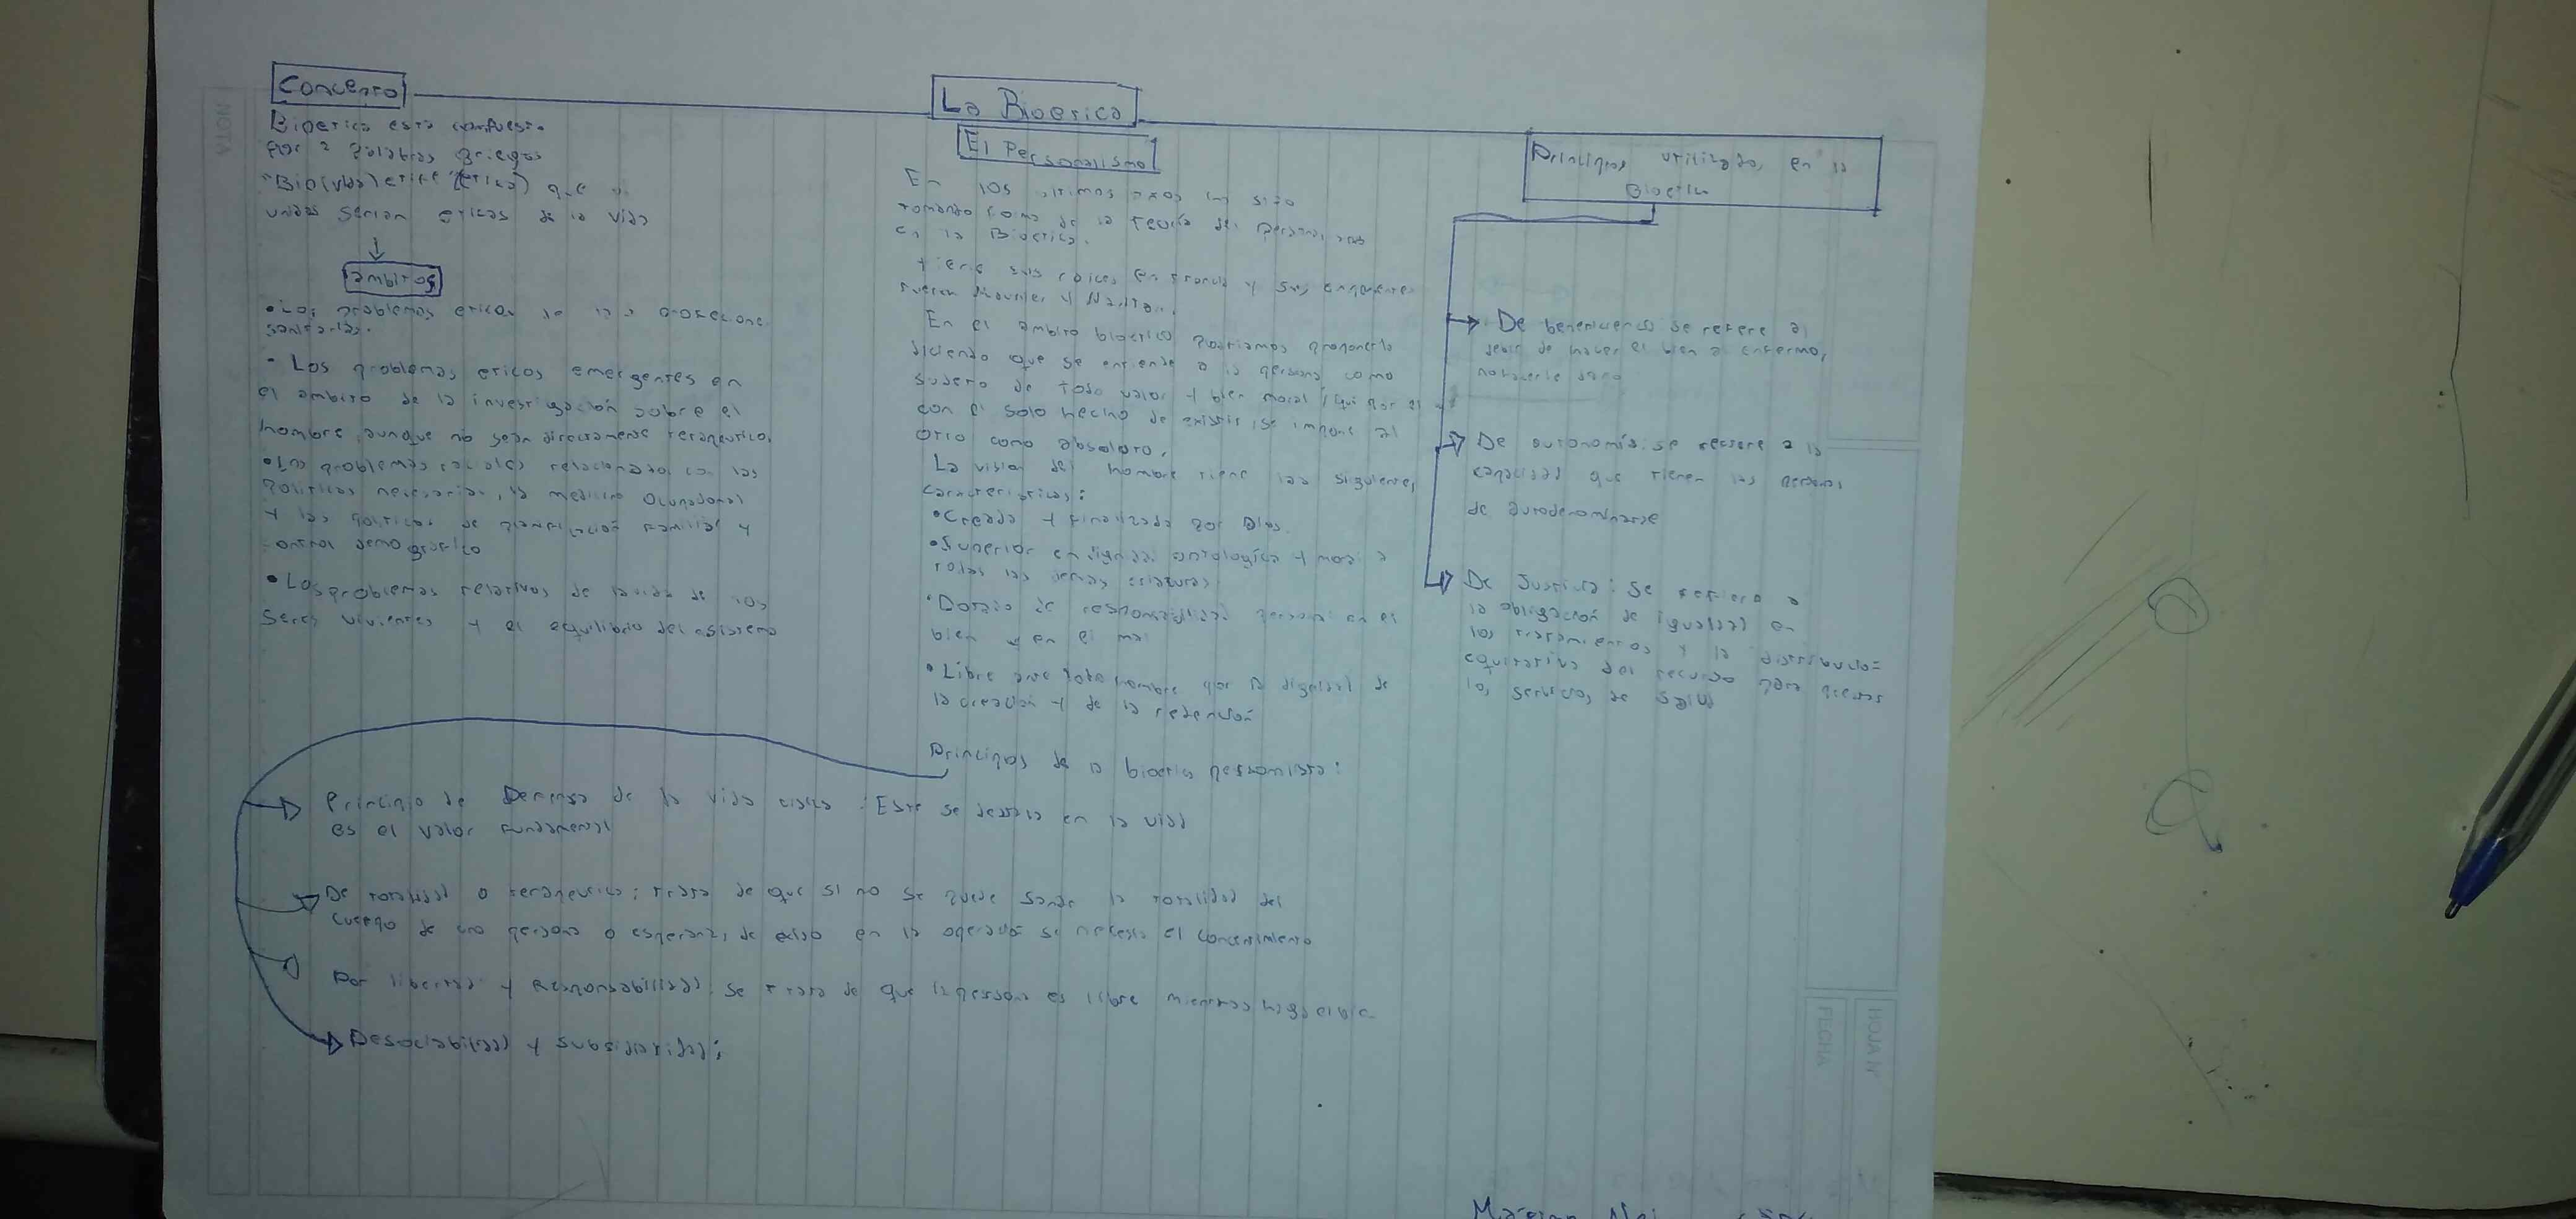 Concepto
Bioetica esta compuesta
por 2 palabras griegas
"Bio(vida) etica (etica) que
unidas serian eticas de la vida
ambitos
• Los problemas eticos de las profesiones
sanitarias.
• Los problemas eticos emergentes en
el ambito de la investigación sobre el
hombre, aunque no sean directamente terapeutico.
• Los problemas sociales relacionados con las
politicas necesarias, la medicina Ocupacional
y las politicas de planificacion familiar y
control demografico
• Los problemas relativos de la vida de los
seres vivientes y el equilibrio del
La Bioetica
El Personalismo
En los ultimos años ha sido
tomando de la teoría del
en la Bioetica.
tiene sus raices en Francia y sus
fueron
En el ambito bioetico podriamos
diciendo que se entiende a la persona como
sujeto de todo valor y bien moral que por el
con el solo hecho de existir se impone al
otro como absoloto.
La vision del hombre tiene las siguientes
caracteristicas:
• Creada y finalizada por Dios.
• Superior en ontologica y moral a
todas las demas criaturas
• Dotado de responsabilidad personal en el
bien y en el mal
• Libre ante todo hombre por la dignidad de
la creación y de la redencion
Principios de la bioetica personalista:
Principio de Defensa de la vida : Este se destaca en la vida
es el valor fundamental
De totalidad o terapeutico: trata de que si no se puede la totalidad del
cuerpo de una persona o esperanza de exito en la operación se necesita el
Por libertad y Responsabilidad: se trata de que la persona es libre mientras haga el
De sociabilidad y subsidiaridad:
Principios utilizados en la
Bioetica
De beneficencia se refere al
debir de hacer el bien al enfermo,
no hacerle daño
De autonomía: se refiere a la
capacidad que tienen las personas
de autodenominarse
De Justicia: Se refiere a
la obligación de igualdad en
los tratamientos y la distribucio=
equitativa del recurso para prestar
los servicios de salud
NOTA
HOJA Nº
FECHA